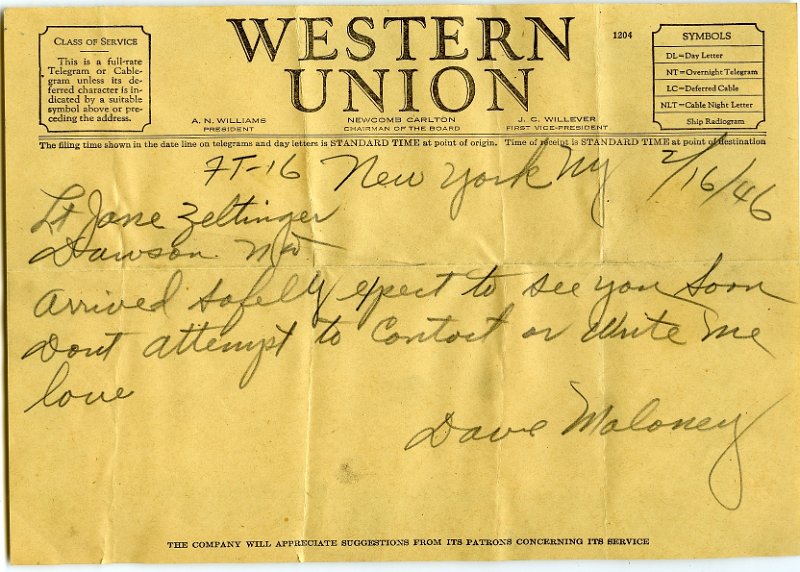 CLASS OF SERVICE
This is a full-rate
Telegram or Cable-
gram unless its de-
ferred character is in-
dicated by a suitable
symbol above or pre-
ceding the address.
WESTERN
UNION
1204
SYMBOLS
DL=Day Letter
NT=Overnight Telegram
LC=Deferred Cable
NLT=Cable Night Letter
Ship Radiogram
A. N. WILLIAMS
PRESIDENT
NEWCOMB CARLTON
CHAIRMAN OF THE BOARD
J. C. WILLEVER
FIRST VICE-PRESIDENT
The filing time shown in the date line on telegrams and day letters is STANDARD TIME at point of origin. Time of receipt is STANDARD TIME at point of destination
FT-16 New York NY 2/16/46
Lt Jane Zeltinger
Dawson
Arrived safelly expect to see you soon
Dont attempt to contact or write me
love
Dave Maloney
THE COMPANY WILL APPRECIATE SUGGESTIONS FROM ITS PATRONS CONCERNING ITS SERVICE